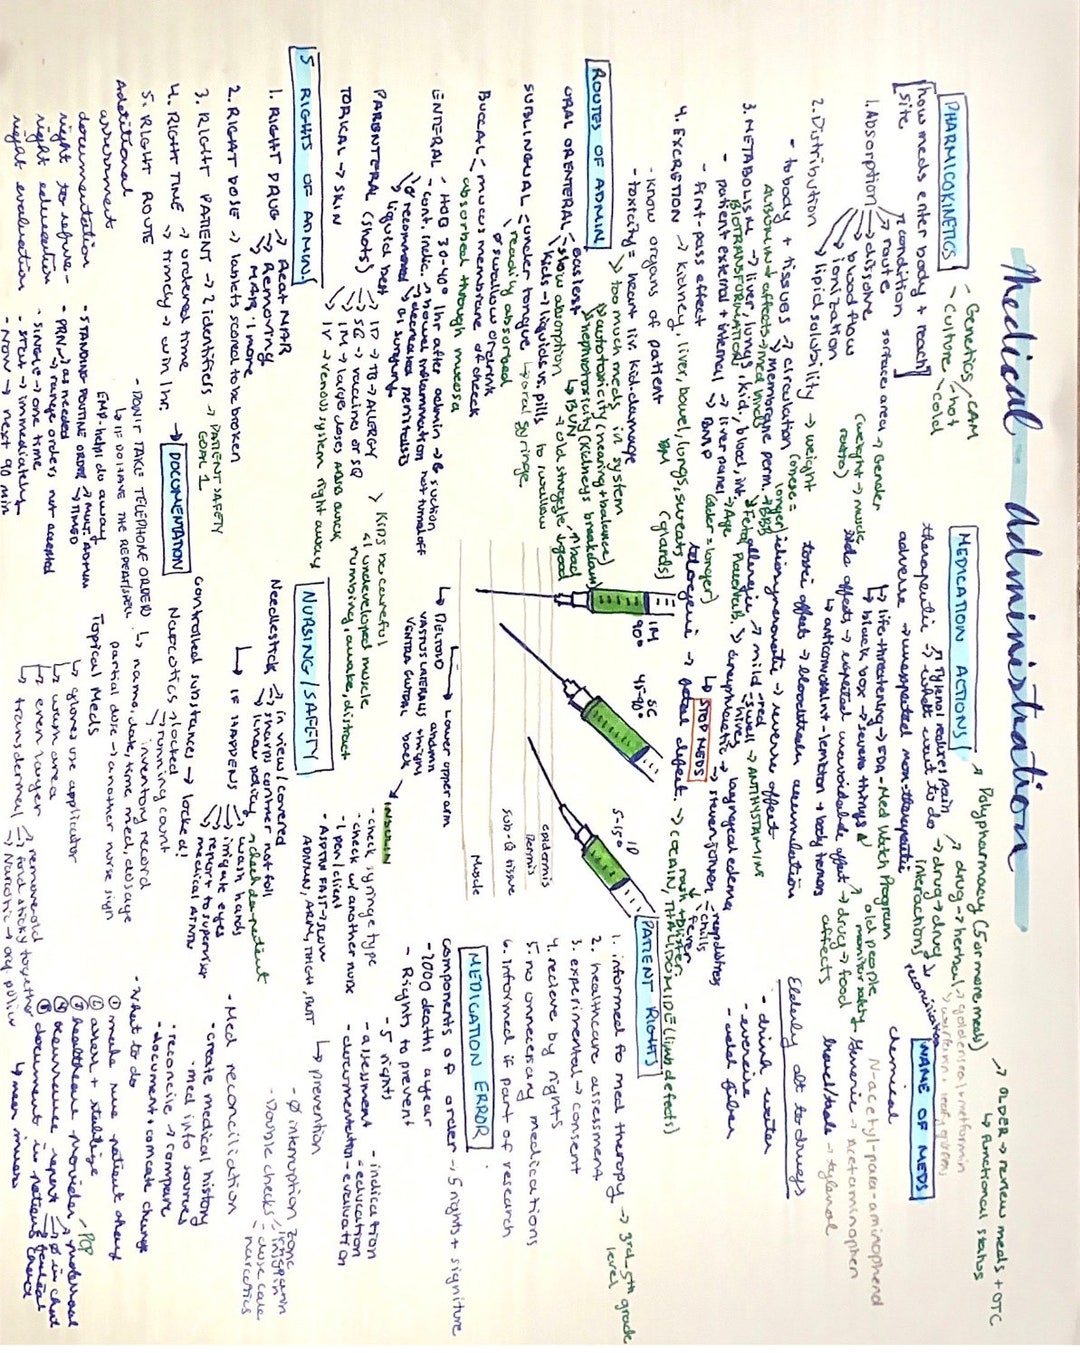 Medical administration
PHARMICOKINETICS
how meds enter body + reach
site
- Genetics/CAM
- Culture
hot
cold
1. Absorption
condition
route
surface area → Gender
dissolve
(weight → muscle
blood flow
ionization
lipid solubility → weight
2. Distribution
- to body + tissues → circulation
membrane perm.
Albumin
3. METABOLISM → liver, lungs, kid, blood, int.
BIOTRANSFORMATION
- patient external + internal → liver panel → Age
- first-pass effect → BMP
(older = longer)
4. EXCRETION → kidney, liver, bowel, lungs, sweats
BM
(glands)
- know organs of patient
- toxicity = heart liv kid damage
ROUTES OF ADMIN
too much meds in system
autotoxicity (hearing + balance)
nephrotoxicity (kidneys breakdown)
↳ BUN
ORAL OR ENTERAL
easiest
slow absorption
kids → liquids vs. pills
→ old struggle to swallow
→ oral syringe
SUBLINGUAL = under tongue
readily absorbed
Ø swallow or drink
BUCCAL
mucus membrane of cheek
absorbed through mucosa
ENTERAL - HOB 30-40° 1hr after admin → Ø suction
- cont. indic. → bowel inflammation not turned off
decreased peristalsis
GI surgery
Ø recommend
liquid best
PARENTERAL (shots)
ID → TB → ALLERGY
SQ → vaccines or SQ
IM → large doses ABD back
IV → venous system right away
> Kids be careful
underdeveloped muscle
numbing, awake, distract
TOPICAL → SKIN
5 RIGHTS OF ADMIN
1. RIGHT DRUG
Read MAR
Removing
MAR 1 more
2. RIGHT DOSE → tablets scored to be broken
3. RIGHT PATIENT → 2 identifiers → PATIENT SAFETY
GOAL 1
4. RIGHT TIME → ordered time
→ timely → w/in 1hr.
5. RIGHT ROUTE
Additional
assessment
documentation
right to refuse
right education
right evaluation
→ DOCUMENTATION
- DON'T TAKE TELEPHONE ORDERS
↳ IF DO HAVE THE REPEAT/SPELL
↳ name, date, time, med, dosage
EMR - helps do away
- STANDING ROUTINE ORDER
MULT. ADMIN
TIMED
- PRN → as needed
↳ range orders not accepted
- SINGLE → one time
- STAT → immediately
- NOW → next 90 min
MEDICATION ACTIONS
therapeutic → what want to do
Tylenol reduces pain
adverse → unexpected non-therapeutic
↳ life-threatening → FDA - Med Watch Program
↳ black box → severe things
side effects → expected unavoidable effect
↳ anticonvulsant - tension → body tremors
toxic effect → blood/tissues accumulation
idiosyncratic → reverse effect
allergic → mild - red
- swell
- hives
→ ANTIHYSTAMINS
anaphylactic → laryngeal edema
↳ STOP MEDS
→ steven johnson
respiratory
chills
fever
rash + blister
teratogenic → fetal defect
→ COCAIN, THALIDOMIDE (limb defects)
Polypharmacy (5 or more meds)
→ OLDER → review meds + OTC
↳ functional status
drug → herbal → goldenseal + metformin
warfarin + leafy greens
→ drug → drug
interactions
→ drug → food
affects
old people
NAME OF MEDS
chemical
N-acetyl-para-aminophenol
Generic → Acetaminophen
brand/trade → tylenol
Elderly dt to drugs
- drink water
- exercise
- add fiber
IM
90°
SC
45-90°
ID
5-15°
epidermis
Dermis
sub-Q tissue
Muscle
↳ DELTOID → lower upper arm
VASTUS LATERALIS → thigh
VENTRA GLUTEAL → back
INSULIN
- check syringe type
- check w/ another nurse
- 1 pen/client
- ABDMN FAST → SLOW
ABDMN, ARM, THIGH, BUTT
PATIENT RIGHTS
1. informed fo med therapy → 3rd-5th grade
level
2. healthcare assessment
3. experimental → consent
4. recieve by rights
5. no unnecessary medications
6. Informed if part of research
MEDICATION ERROR
components of order → 5 rights + signiture
- 7000 deaths a year
- Rights to prevent
- 5 rights
- assessment
- documentation
- indication
- education
- evaluation
↳ prevention
- Ø interruption zone
- Double checks
insulin
dose calc
narcotics
NURSING/SAFETY
Needlestick
in view/covered
sharps container not full
know policy
↳ IF HAPPENS
wash hands
irrigate eyes
report to supervisor
medical ATNTN
controlled substances → locked!
Narcotics → locked
→ running count
→ inventory record
partial dose → another nurse sign
Topical Meds
↳ gloves use applicator
↳ wash area
↳ even layer
↳ transdermal
remove old
fold sticky together
→ Narcotic → oxy policy
- Med reconciliation
- create medical history
- med info sources
- reconcile → compare
- document + comcate change
- What to do
① make sure patient okay
② assess + stabilize
③ healthcare provider / PCP
④ occurrence report → Ø in chart
⑤ document in patient chart
↳ near misses